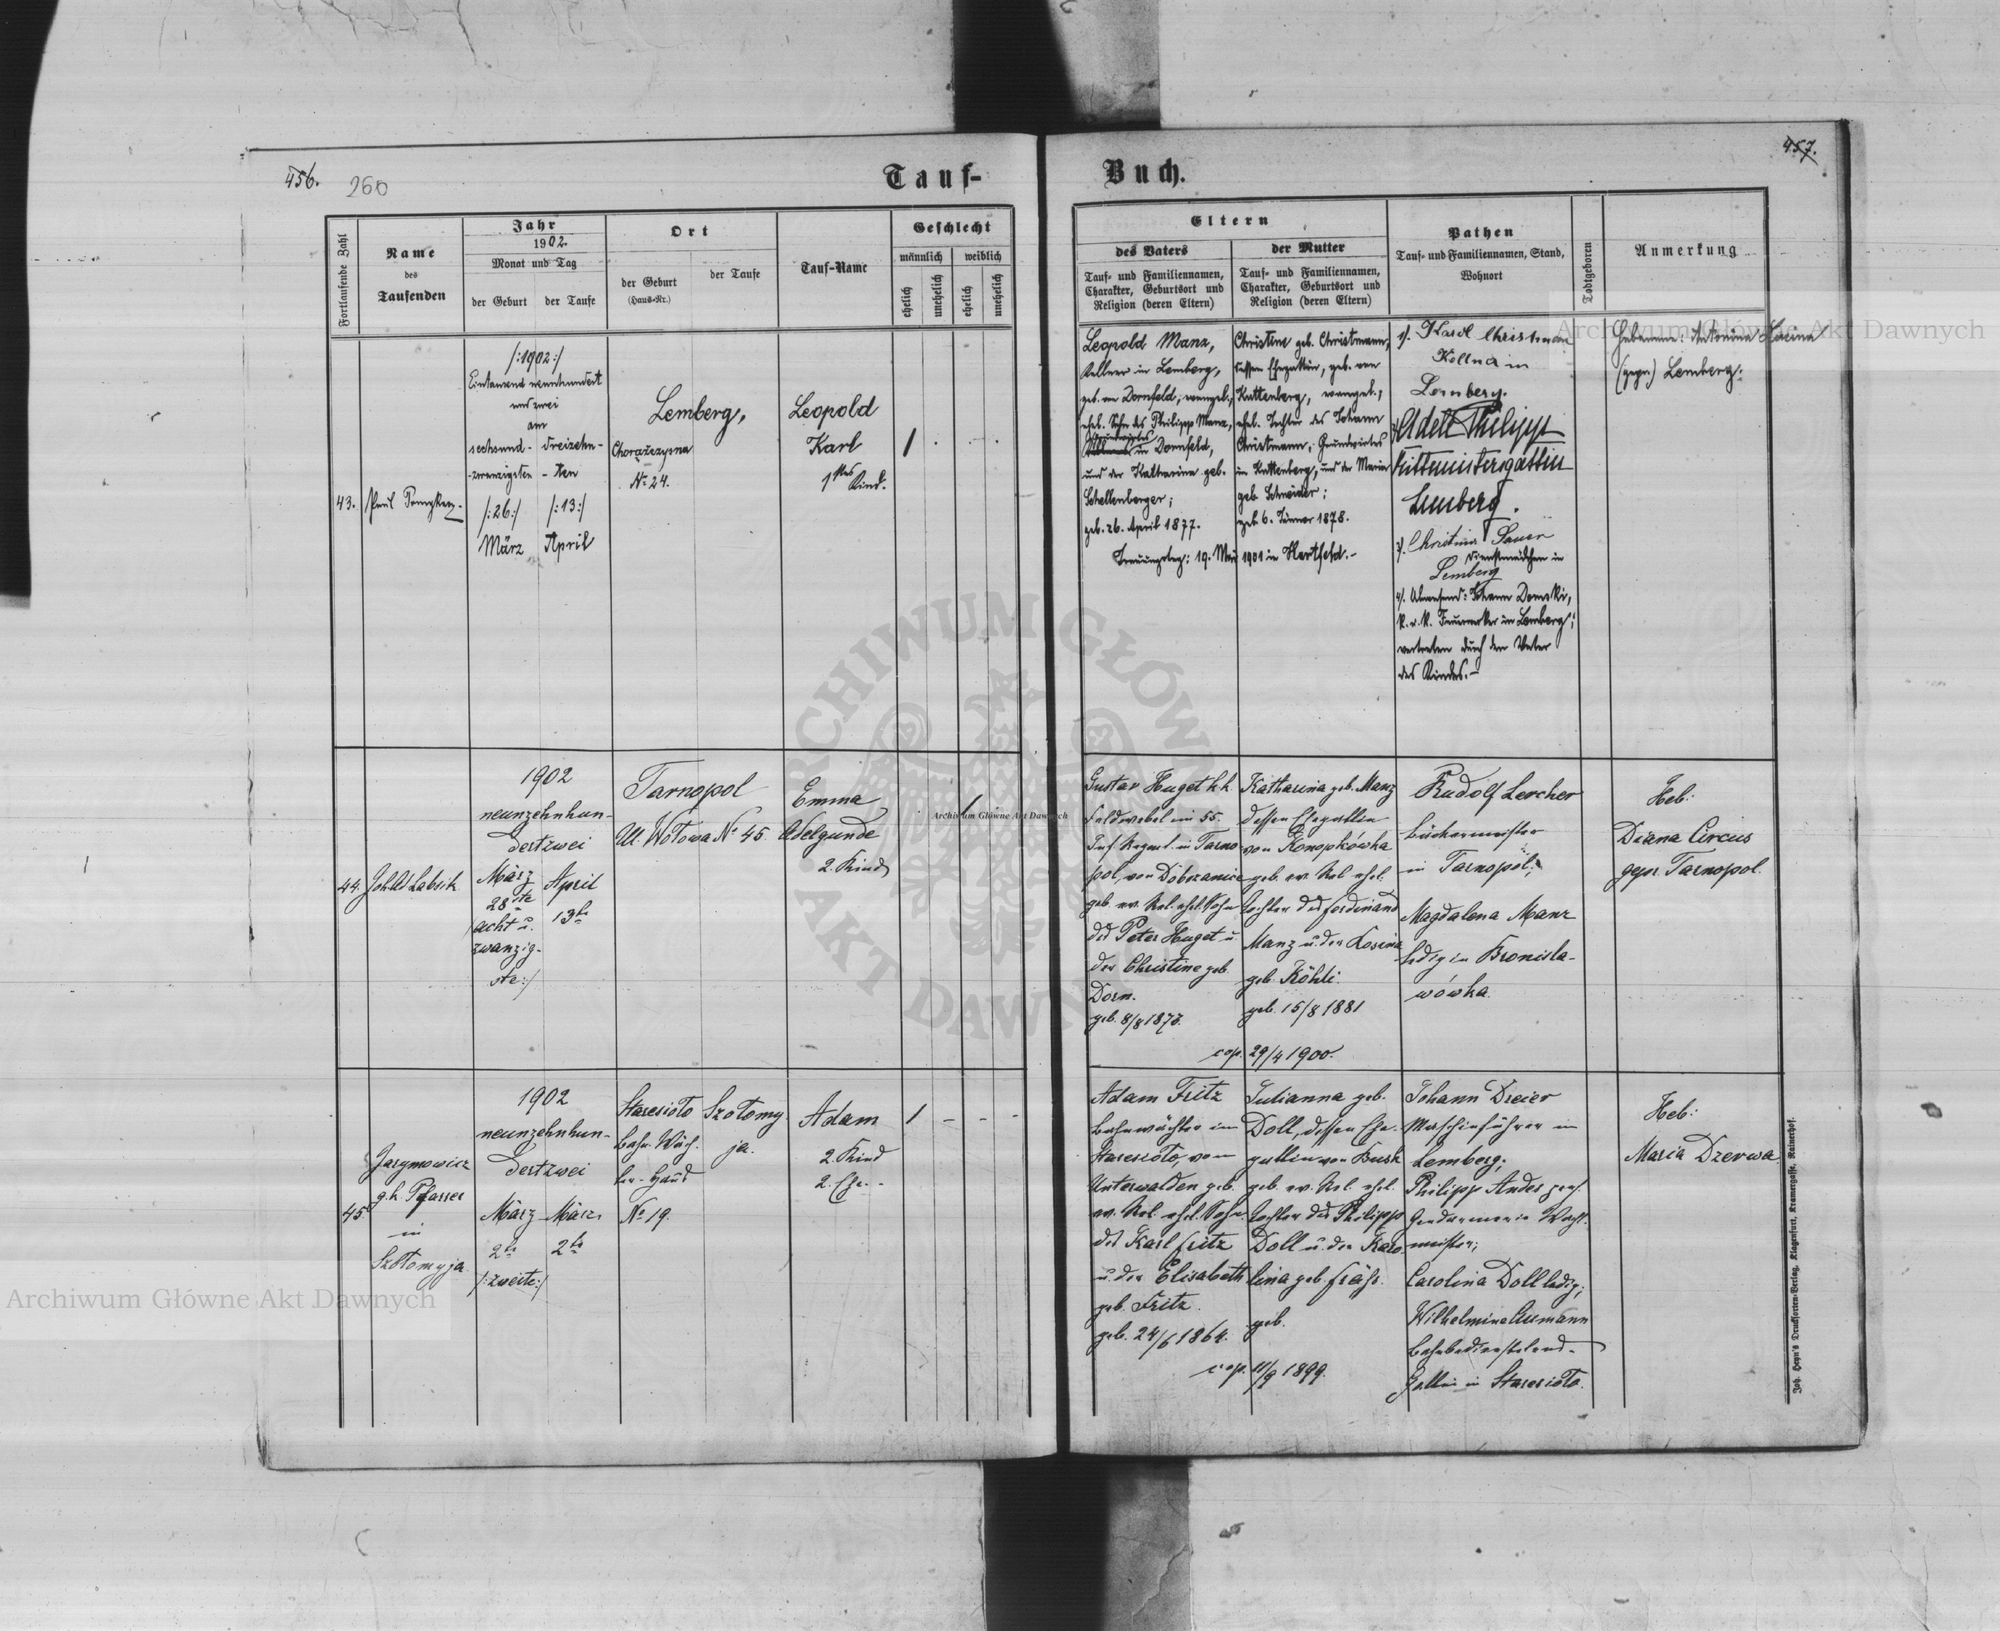 456.
260
Tauf-
Fortlaufende Zahl
Name
des
Taufenden
Jahr
1902.
Monat und Tag
der Geburt
der Taufe
Ort
der Geburt
(Haus-Nr.)
der Taufe
Tauf-Name
Geschlecht
männlich
weiblich
ehelich
unehelich
ehelich
unehelich
43.
Paul
/:1902:/
Eintausend neunhundert
und zwei
am
sechsund-
zwanzigsten
/:26:/
März
dreizehn-
-ten
/:13:/
April
Lemberg,
Chorążczyzna
No 24.
Leopold
Karl
1tes Kind.
1
44.
1902
neunzehnhun-
dertzwei
März
28ste
/acht u.
zwanzig-
ste:/
April
13te
Tarnopol
Ul. Wotowa No 45.
Emma
Adelgunde
2. Kind
1
45.
Jarymowicz
g.k. Pfarrer
in
Szołomyja
1902
neunzehnhun-
dertzwei
März
2te
/:zweite:/
März
2te
Staresioło
Bahn-Wäch-
ter-Haus
No 19.
Szołomy-
ja.
Adam
2. Kind
2. Ehe.-
1 - - -
457.
Buch.
Eltern
des Vaters
Tauf- und Familiennamen,
Charakter, Geburtsort und
Religion (deren Eltern)
der Mutter
Tauf- und Familiennamen,
Charakter, Geburtsort und
Religion (deren Eltern)
Pathen
Tauf- und Familiennamen, Stand,
Wohnort
Todtgeboren
Anmerkung
Leopold Manz,
Kellner in Lemberg,
geb. von Dornfeld, evangel.,
ehel. Sohn des Philipp Manz,
in Dornfeld,
und der Katharina geb.
Schellenberger;
geb. 26. April 1877.
Christine geb. Christmann,
dessen Ehegattin, geb. von
Kuttenberg, evangel.,
ehel. Tochter des Johann
Christmann, Grundwirtes
in Kuttenberg, und der Maria
geb. Schneider;
geb. 6. Jänner 1878.
Trauungstag: 19. Mai 1901 in Hartfeld.-
1/. Karl Christmann
Kellner in
Lemberg.
Adele Philipp
Rittmeistersgattin
Lemberg.
3/. Christina Sauer
Dienstmädchen in
Lemberg
4/. Abwesend: Johann Domski,
k. u. k. Feuerwerker in Lemberg;
vertreten durch den Vater
des Kindes.-
Hebamme: Antonina
(gepr.) Lemberg.
Gustav Huget k.k.
Feldwebel im 55.
Inf. Regmt. in Tarno-
pol, von Dobrzanice
geb. ev. Rel. ehel. Sohn
des Peter Huget u.
der Christine geb.
Dorn.
Katharina geb. Manz
dessen Ehegattin
von Konopkówka
geb. ev. Rel. ehel.
Tochter des Ferdinand
Manz u. der Rosina
geb. Köhli.
geb. 15/8 1881
cop. 29/4 1900.
Rudolf Lercher
Bäckermeister
in Tarnopol;
Magdalena Manz
ledig in Bronisła-
wówka.
Heb:
Diana Circus
gepr. Tarnopol.
Adam Fritz
Bahnwächter in
Staresioło, von
Unterwalden geb.
ev. Rel. ehel. Sohn
des Karl Fritz
u. der Elisabeth
geb. Fritz.
geb. 24/6 1864.
Julianna geb.
Doll, dessen Ehe-
gattin von Busk
geb. ev. Rel. ehel.
Tochter des Philipp
Doll u. der Karo-
lina geb.
geb.
cop. 11/9 1899.
Johann Dreier
Maschinführer in
Lemberg;
Philipp Andes pens.
Gendarmerie Wacht-
meister;
Carolina Doll ledig;
Wilhelmine Aumann
in Staresioło.
Heb:
Maria Dzerwa
Joh. Heyn's Drucksorten-Verlag, Klagenfurt, Kramergasse, Kleinerhof.
Archiwum Główne Akt Dawnych
Archiwum Główne Akt Dawnych
Archiwum Główne Akt Dawnych
ARCHIWUM GŁÓWNE AKT DAWNYCH